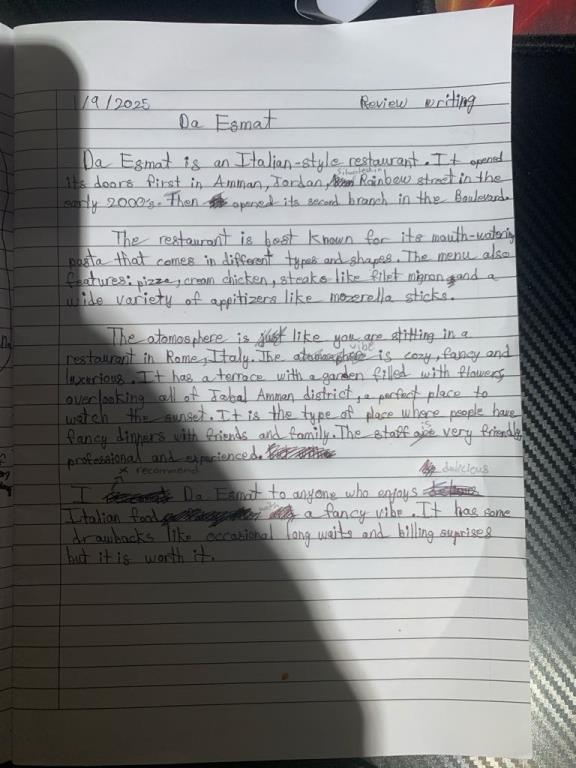 1/9/2025 Review writing
Da Esmat
Da Esmat is an Italian-style restaurant. It opened
its doors first in Amman, Jordan, Rainbow street in the
early 2000's. Then opened its second branch in the Boulevard.
The restaurant is best known for its mouth-watering
pasta that comes in different types and shapes. The menu also
features: pizza, cream chicken, steaks like filet mignon, and a
wide variety of appitizers like mozerella sticks.
The atomosphere is just like you are stitting in a
restaurant in Rome, Italy. The vibe is cozy, fancy and
luxerious. It has a terrace with a garden filled with flowers
overlooking all of Jabal Amman district, a perfect place to
watch the sunset. It is the type of place where people have
fancy dinners with friends and family. The staff is very friendly,
professional and experienced.
I recommend Da Esmat to anyone who enjoys delicious
Italian food a fancy vibe. It has some
drawbacks like occasional long waits and billing suprises
but it is worth it.